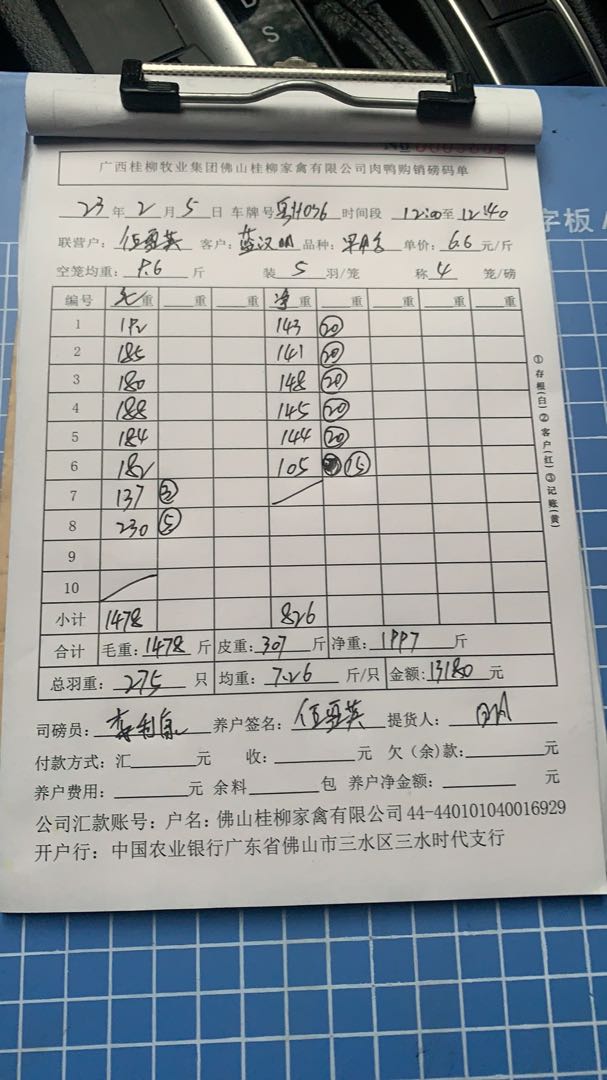 S D
№
广西桂柳牧业集团佛山桂柳家禽有限公司肉鸭购销磅码单
23 年 2 月 5 日 车牌号 H076 时间段 12:00至12:40
联营户: 伍勇英 客户: 蓝汉明 品种: 单价: 6.6 元/斤
空笼均重: 9.6 斤 装 5 羽/笼 称 4 笼/磅
编号 毛重 重 重 净重 重 重 重 重
1 192 143 ⑳
2 185 141 ⑳
3 180 148 ⑳
4 188 145 ⑳
5 184 144 ⑳
6 182 105 ⑮
7 137
8 230 ⑤
9
10
小计 1478 826
合计 毛重: 1478 斤 皮重: 307 斤 净重: 1997 斤
总羽重: 275 只 均重: 7.26 斤/只 金额: 13180 元
司磅员: 养户签名: 伍勇英 提货人:
付款方式: 汇 元 收: 元 欠(余)款: 元
养户费用: 元 余料 包 养户净金额: 元
公司汇款账号: 户名: 佛山桂柳家禽有限公司 44-440101040016929
开户行: 中国农业银行广东省佛山市三水区三水时代支行
①存根(白)②客户(红)③记账(黄)
字板